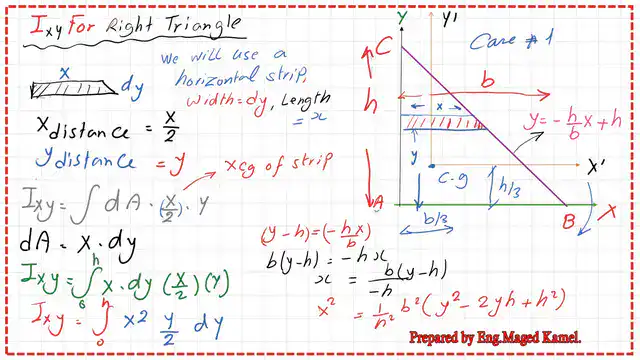 Ixy For Right Triangle
We will use a
horizontal strip,
width=dy, Length
= x
x
dy
x distance = x/2
y distance = y
xcg of strip
Ixy = ∫ dA · (x/2) · y
dA = x · dy
Ixy = ∫₀ʰ x · dy (x/2) (y)
Ixy = ∫₀ʰ x2 y/2 dy
Y
Y'
Case #1
C
b
h
x
y = -h/b x + h
y
C.g
X'
h/3
A
b/3
B
X
(y-h) = (-hx/b)
b(y-h) = -hx
x = b(y-h)/-h
x² = 1/h² b² (y² - 2yh + h²)
Prepared by Eng.Maged Kamel.